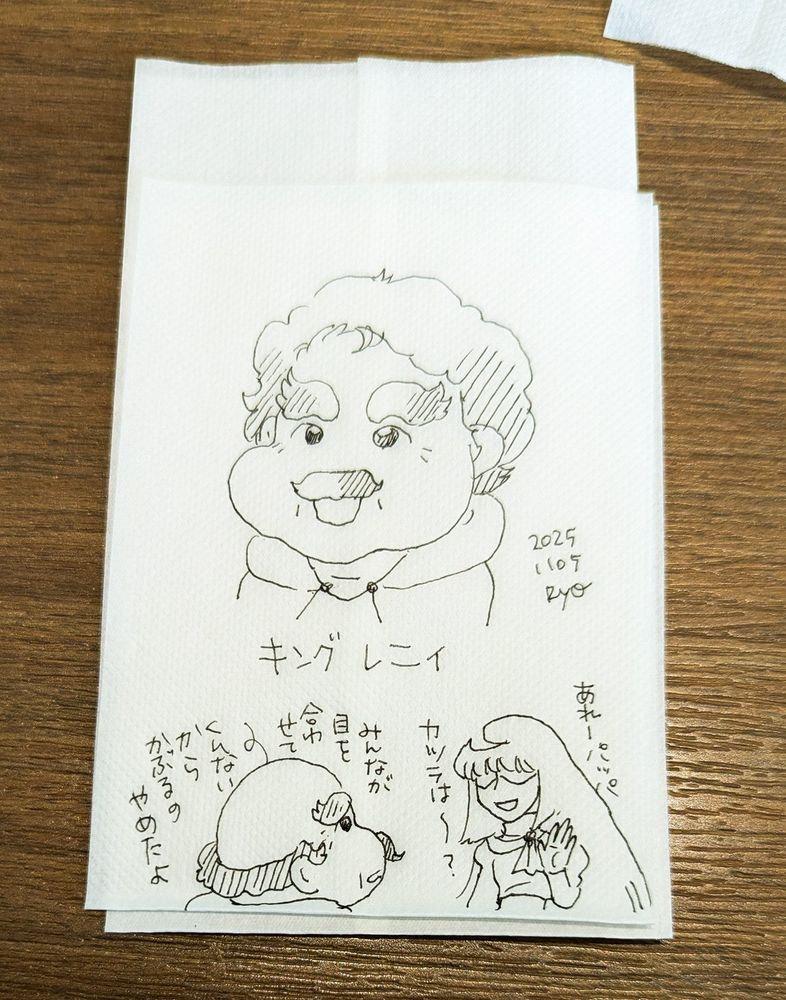 2025
1105
Ryo
キング レニィ
あれーパッパ
カツラは〜?
みんなが
目を
合わ
せて
くんない
から
かぶるの
やめたよ